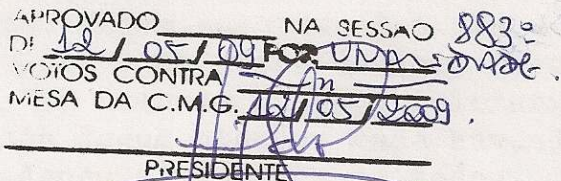 APROVADO NA SESSAO 883ª
DE 12 / 05 / 09 FOR UNANIDADE.
VOTOS CONTRA
MESA DA C.M.G. 12 / 05 / 2009.
PRESIDENTE